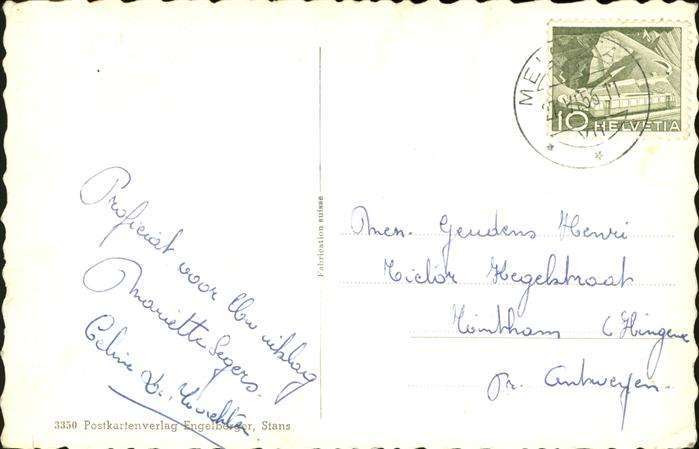 Proficiat voor Uw uitslag
Mariette Segers.
Celine
3350 Postkartenverlag Engelberger, Stans
Fabrication suisse
10 HELVETIA
Men. Geudens Henri
Victor Hegelstraat
Wintham (Hingene
Pr. Antwerpen.